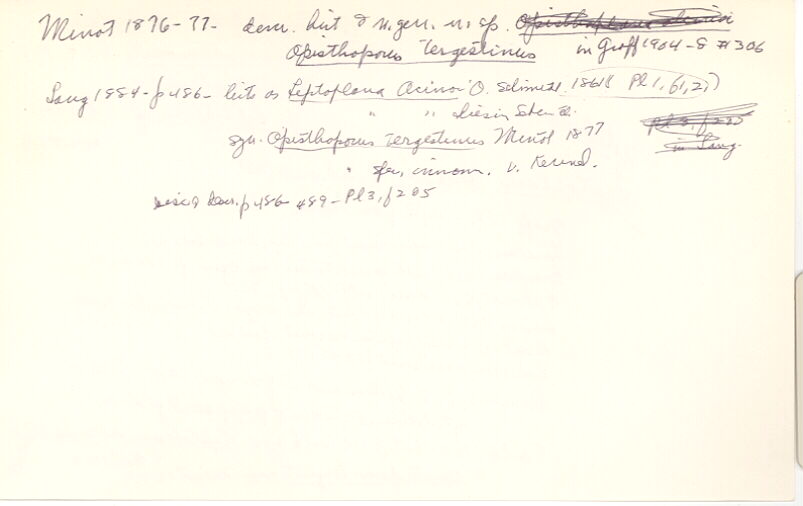 Minot 1876-77- descr. hist & n. gen. n. sp.
Opisthoporus Tergestinus in Graff 1904-5 # 306
Lang 1884-p 486- lists as Leptoplana Alcinoi O. Schmidt 1861 (Pl 1, 61, 2,)
" " diesing Schmidt.
syn. Opisthoporus tergestinus Minot 1877
" spec. innom. v. Kennel.
disc & descr. p 486-489- Pl 3, f 205